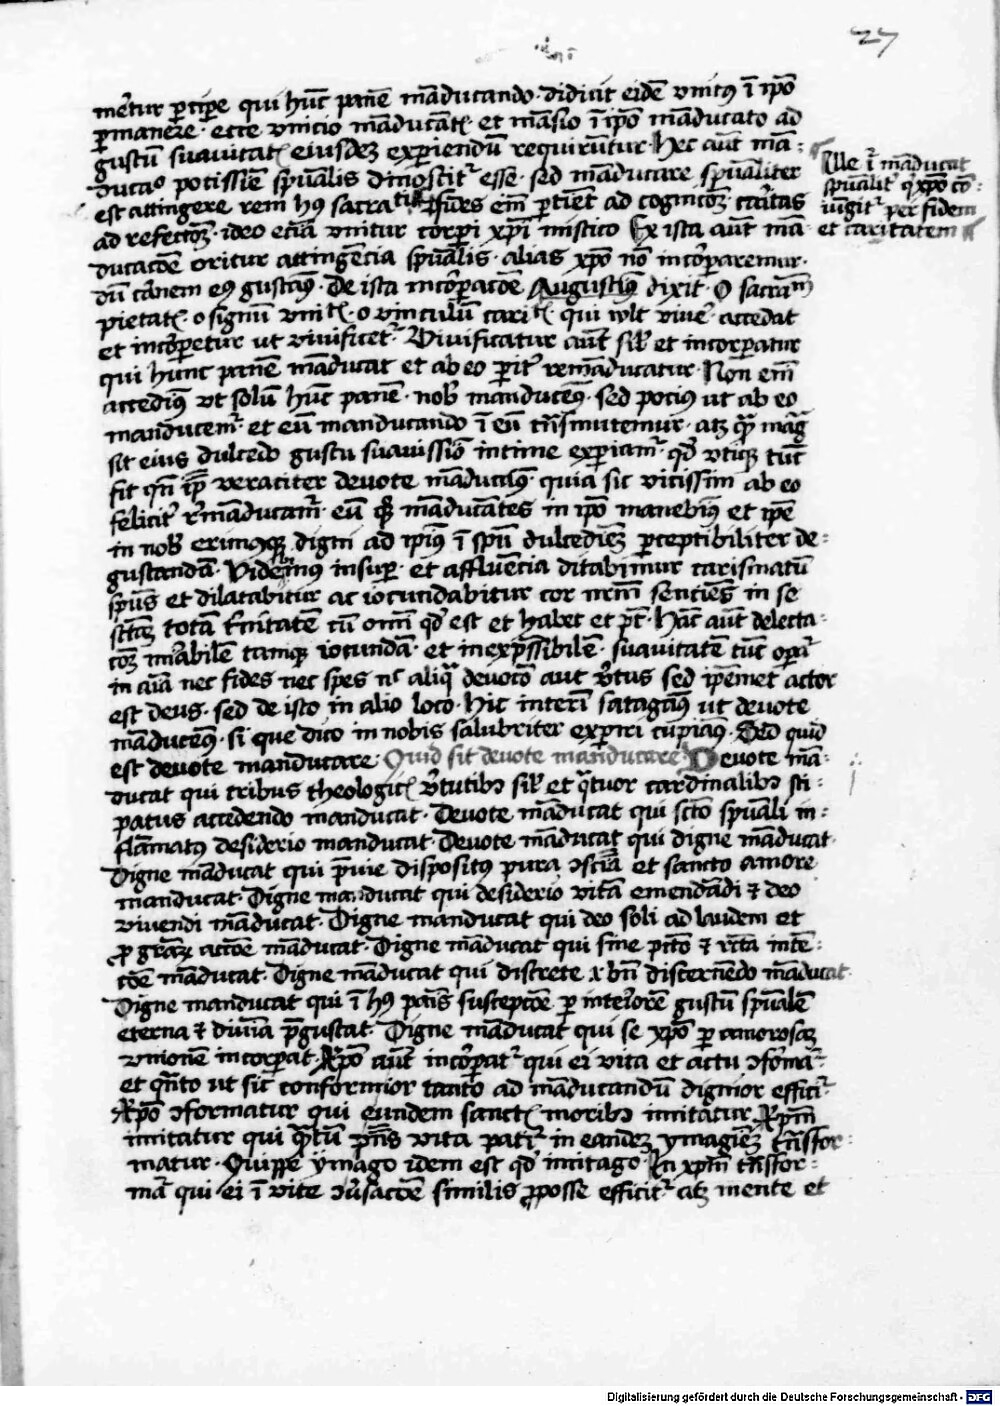 27
mēretur p̄ticipe qui hūc panē māducando didicit eidē vnitus ī ip̄o
p̄manere ecce vnicio māducātꝭ et māsio ī ip̄o māducato ad
gustū suauitatꝭ eiusdeꝫ exp̄iendū requirūtur Hec aūt mā-
ducaᵒ potissiē sp̄ualis dinoscitʳ esse sed māducare sp̄ualiter
est attingere rem hꝰ sacra fides em̄ p̄tinet ad cognicōꝫ caritas
ad refectōꝫ ideo etiā vnitur corp̄i xp̄i mistico Ex ista aūt mā
ducacōe oritur attingēcia sp̄ualis alias xp̄o nō incorp̄aremur
dū carnem eꝰ gustamꝰ De ista incorp̄acōe Augustinꝰ dixit O sacramᵐ
pietatꝭ o signū vnitꝭ o vinculū caritꝭ qui vult viue accedat
et incorp̄etur ut viuificetʳ Viuificatur aūt sil̄r et incorp̄atur
qui hunc panē māducat et ab eo p̄it remāducatur Non em̄
accedimꝰ vt solū hūc panē nob̄ manducemꝰ sed pociꝰ ut ab eo
manducemʳ et eū manducando ī eū trāsmutemur atꝫ quā maḡ
sit eius dulcedo gustu suauissio intime exp̄iamʳ qd̄ vtiqꝫ tūc
fit qn̄ ip̄m veraciter deuote māducamꝰ quia sic vicissim ab eo
felicitʳ remāducamʳ eū māducātes in ip̄o manebimꝰ et ip̄e
in nob̄ erimusqꝫ digni ad ip̄iꝰ ī sp̄u dulcediēꝫ p̄ceptibiliter de-
gustandā Videbimus insup̄ et affluencia ditabimur carismatū
sp̄us et dilatabitur ac iocundabitur cor nr̄m sencies in se
sc̄tāꝫ totā t̄nitatē cū om̄i qd̄ est et habet et p̄t Hāc aūt delecta-
cōꝫ mirabilē tamqꝫ iocundā et inexp̄ssibilē suauitatē tūc opāʳ
in aīa nec fides nec spes nᶜ aliq̄ deuocō aut v̄tus sed ip̄emet actor
est deus sed de isto in alio loco hic interī satagamꝰ ut deuote
māducemꝰ si que dico in nobis salubriter exp̄iri cupiamꝰ Sed quid
est deuote manducare Quid sit deuote manducare Deuote mā-
ducat qui tribus theologicꝭ v̄tutibꝫ sil̄ et q̄tuor cardinalibꝫ sti-
patus accedendo manducat Deuote māducat qui sc̄to sp̄uali in-
flāmatus desiderio manducat Deuote māducat qui digne māducat
Digne māducat qui p̄uie dispositus pura ꝯsciā et sancto amore
manducat Digne manducat qui desiderio vitā emendādi ⁊ deo
viuendi māducat Digne manducat qui deo soli ad laudem et
ꝓ grāꝝ actōe māducat Digne māducat qui sine p̄cto ⁊ rc̄ta intē-
cōe māducat Digne māducat qui discrete ⁊ bn̄ discernēdo māducat
Digne manducat qui ī hꝰ panis suscepcōe p̄ interiorē gustū sp̄ualē
eterna ⁊ diuina p̄gustat Digne māducat qui se xp̄o p̄ amorosaꝫ
vnionē incorp̄at Xp̄o aūt incorp̄atʳ qui ei vita et actu ꝯformaʳ
et qn̄to ut sic conformior tanto ad māducandū dignior efficiʳ
Xp̄o ꝯformatur qui eundem sanctꝭ moribꝫ imitatur Xp̄m
imitatur qui q̄ntū p̄ntis vita patiʳ in eandeꝫ ymagiēꝫ trāsfor-
matur Quippe ymago idem est qd̄ imitago In xp̄m trāsfor-
māʳ qui ei ī vite ꝯūsacōe similis ꝓposse efficitʳ atꝫ mente et
Ille ī māducat
sp̄ualitʳ q̄ xp̄o cō-
iūgitʳ per fidem
et caritatem
Digitalisierung gefördert durch die Deutsche Forschungsgemeinschaft - DFG